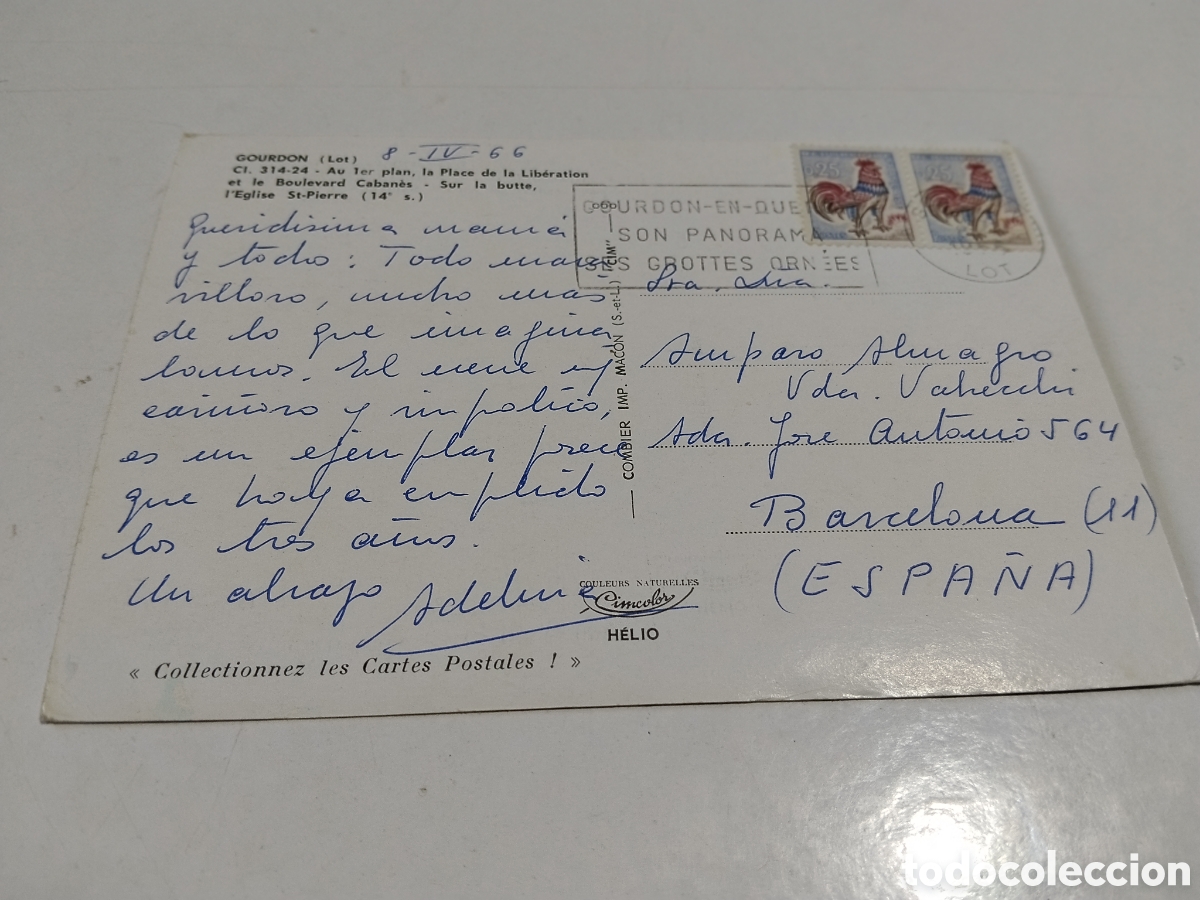 GOURDON (Lot)
8-IV-66
Cl. 314-24 - Au 1er plan, la Place de la Libération
et le Boulevard Cabanès - Sur la butte,
l'Eglise St-Pierre (14e s.)
Queridisima mamá
y todos: Todo mara
villoso, mucho mas
de lo que imaginá
bamos. El nene muy
cariñoso y simpatico,
es un ejemplar parece
que haya cumplido
los tres años.
Un abrazo
« Collectionnez les Cartes Postales ! »
COMBIER IMP. MACON (S.-et-L.) "CIM"
COULEURS NATURELLES
Cimcolor
HÉLIO
25
25
GOURDON-EN-QUE
SON PANORAMA
SES GROTTES ORNÉES
LOT
Sra. Dña.
Amparo Almagro
Vda.
Ada. Jose Antonio 564
Barcelona (11)
(ESPAÑA)
todocoleccion